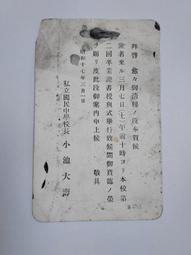 拜啓 愈々御清穆ノ段奉賀候
陳者來ル三月七日(土)午前十時ヨリ本校第
二回卒業證書授與式擧行致候間御賁臨ノ榮
ヲ賜リ度此段御案內申上候 敬具
昭和十七年三月一日
私立國民中學校長 小池大壽